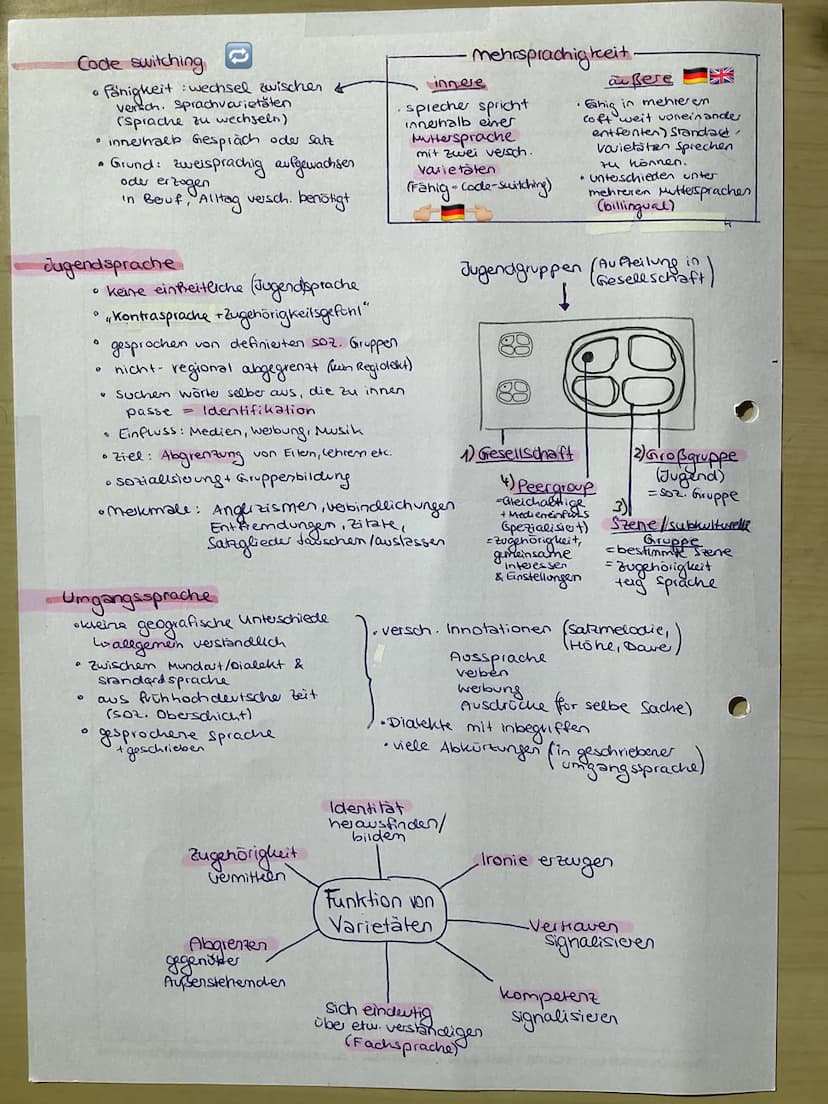 Code switching
• Fähigkeit: wechsel zwischen
versch. Sprachvarietäten
(Sprache zu wechseln)
• innerhalb Gespräch oder Satz
• Grund: zweisprachig aufgewachsen
oder erzogen
in Beruf, Alltag versch. benötigt
Mehrsprachigkeit
innere
. sprecher spricht
innerhalb einer
Muttersprache
mit zwei versch.
Varietäten
(Fähig = Code-switching)
äußere
• fähig in mehreren
(oft weit voneinander
entfernten) Standard-
varietäten sprechen
zu können.
• unterschieden unter
mehreren Muttersprachen
(billingual)
Jugendsprache
• keine einheitliche (Jugend)sprache
• „Kontrasprache + Zugehörigkeitsgefühl"
• gesprochen von definierten soz. Gruppen
• nicht-regional abgegrenzt (kein Regiolekt)
• suchen wörter selber aus, die zu innen
passe = Identifikation
• Einfluss: Medien, Werbung, Musik
• Ziel: Abgrenzung von Eltern, Lehrern etc.
• Sozialisierung + Gruppenbildung
• Merkmale: Anglizismen, verbindlichungen
Entfremdungen, Zitate,
Satzglieder tauschen/auslassen
Jugendgruppen (Aufteilung in
Gesellschaft)
1) Gesellschaft
2) Großgruppe
(Jugend)
= soz. Gruppe
4) Peergroup
=Gleichaltrige
+ Medieneinfluss
(spezialisiert)
= Zugehörigkeit,
gemeinsame
Interessen
& Einstellungen
3)
Szene/subkulturelle
Gruppe
= bestimmte Szene
= Zugehörigkeit
+ eig Sprache
Umgangssprache
• kleine geografische Unterschiede
↳ allgemein verständlich
• zwischen Mundart/Dialekt &
standardsprache
• aus frühhochdeutscher Zeit
(soz. Oberschicht)
• gesprochene Sprache
+ geschrieben
• versch. Innotationen (Satzmelodie,
Höhe, Dauer)
Aussprache
Verben
Werbung
Ausdrücke (for selbe Sache)
• Dialekte mit inbegriffen
• viele Abkürtungen (in geschriebener
umgangssprache)
Funktion von
Varietäten
Identität
herausfinden/
bilden
Ironie erzeugen
Vertrauen
signalisieren
Kompetenz
signalisieren
Sich eindeutig
über etw. verständigen
(Fachsprache)
Abgrenzen
gegenüber
Außenstehenden
Zugehörigkeit
vermitteln